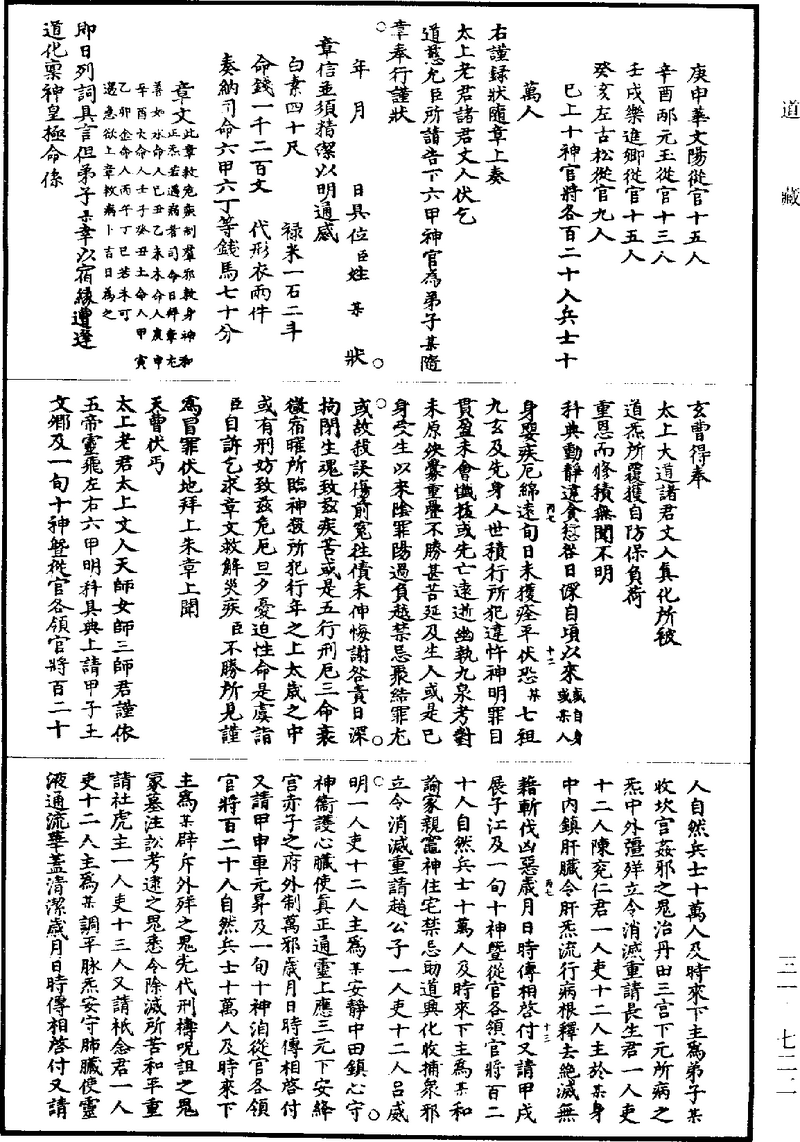 道藏
庚申華文陽從官十五人
辛酉邴元玉從官十三人
壬戌樂進卿從官十五人
癸亥左古松從官九人
已上十神官將各百二十人兵士十
萬人
右謹録狀隨章上奏
太上老君諸君丈人伏乞
道慈允臣所請告下六甲神官為弟子某隨
章奉行謹狀
年月日具位臣姓某狀
章信並須精潔以明通感
白素四十尺 祿米一石二斗
命錢一千二百文 代形衣兩件
奏納司命六甲六丁等錢馬七十分
章文此章救危厄制羣邪救身神和
正炁若遇病者司命日拜章尤
善如水命人己丑乙未木命人庚申
辛酉火命人壬子癸丑土命人甲寅
乙卯金命人丙午丁巳若未可
遇急欲上章救病卜吉日為之
即日列詞具言但弟子某幸以宿緣遭逢
道化稟神皇極命係
玄曹得奉
太上大道諸君丈人真化所被
道炁所覆獲自防保負荷
重恩而修積無聞不明
科典動靜違負愆咎日深自頃以來或自身或某人
身嬰疾厄綿遠旬日未獲痊平伏恐某七祖
九玄及先身人世積行所犯違忤神明罪目
貫盈未會懺拔或先亡遠逝幽執九泉考對
未原殃釁重疊不勝甚苦延及生人或是已
身受生以來陰罪陽過負越禁忌聚結罪尤
或故殺誤傷前冤往債未伸悔謝咎責日深
拘閉生魂致兹疾苦或是五行刑厄三命衰
微宿曜所臨神殺所犯行年之上太歲之中
或有刑妨致兹危厄旦夕憂迫性命是虞詣
臣自訴乞求章文救解災疾臣不勝所見謹
為冒罪伏地拜上朱章上聞
天曹伏丐
太上老君太上丈人天師女師三師君謹依
五帝靈飛左右六甲明科具典上請甲子王
文卿及一旬十神暨從官各領官將百二十
人自然兵士十萬人及時來下主為弟子某
收坎宫姦邪之鬼治丹田三宫下元所病之
炁中外殟殃立令消滅重請長生君一人吏
十二人陳兖仁君一人吏十二人主於某身
中内鎮肝臟令肝炁流行病根釋去絶滅無
藉斬伐凶惡歲月日時傳相啓付又請甲戌
展子江及一旬十神暨從官各領官將百二
十人自然兵士十萬人及時來下主為某和
論家親竈神住宅禁忌助道興化收捕衆邪
立令消滅重請趙公子一人吏十二人吕威
明一人吏十二人主為某安靜中田鎮心守
神衛護心臟使真正通靈上應三元下安絳
宫赤子之府外制萬邪歲月日時傳相啓付
又請甲申車元昇及一旬十神洎從官各領
官將百二十人自然兵士十萬人及時來下
主為某辟斥外殃之鬼先代刑禱呪詛之鬼
冢墓注訟考逮之鬼悉令除滅所苦和平重
請社虎主一人吏十三人又請祇念君一人
吏十二人主為某調平脉炁安守肺臟使靈
液通流華蓋清潔歲月日時傳相啓付又請
三一·七二二